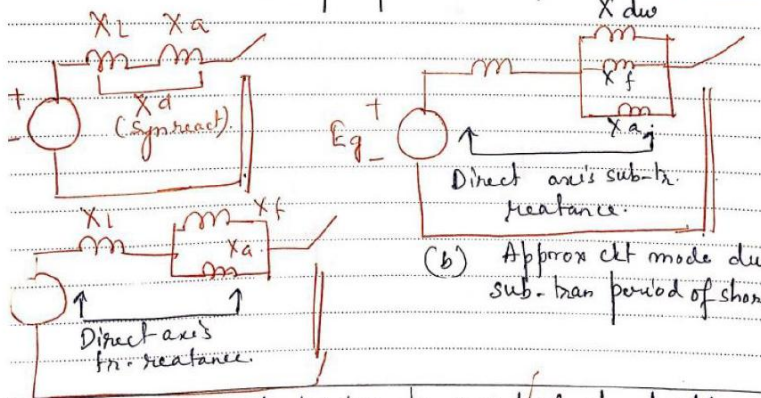 Xl Xa
Xd
(Synreact).
+
-
Xl
Xf
Xa.
Direct axis
tr. reatance.
X dw
X f
Xa
+
Eg
-
Direct axis sub-tr.
reatance.
(b) Approx ckt mode du
sub-tran period of shor